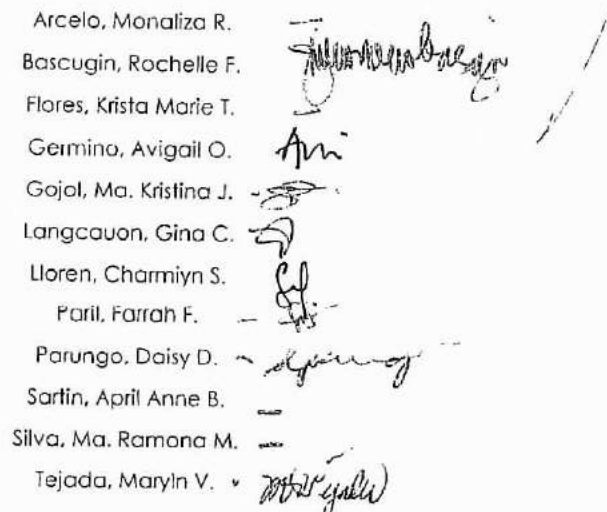 Arcelo, Monaliza R.
Bascugin, Rochelle F.
Flores, Krista Marie T.
Germino, Avigail O.
Gojol, Ma. Kristina J.
Langcauon, Gina C.
Lloren, Charmiyn S.
Paril, Farrah F.
Parungo, Daisy D.
Sartin, April Anne B.
Silva, Ma. Ramona M.
Tejada, Maryin V.